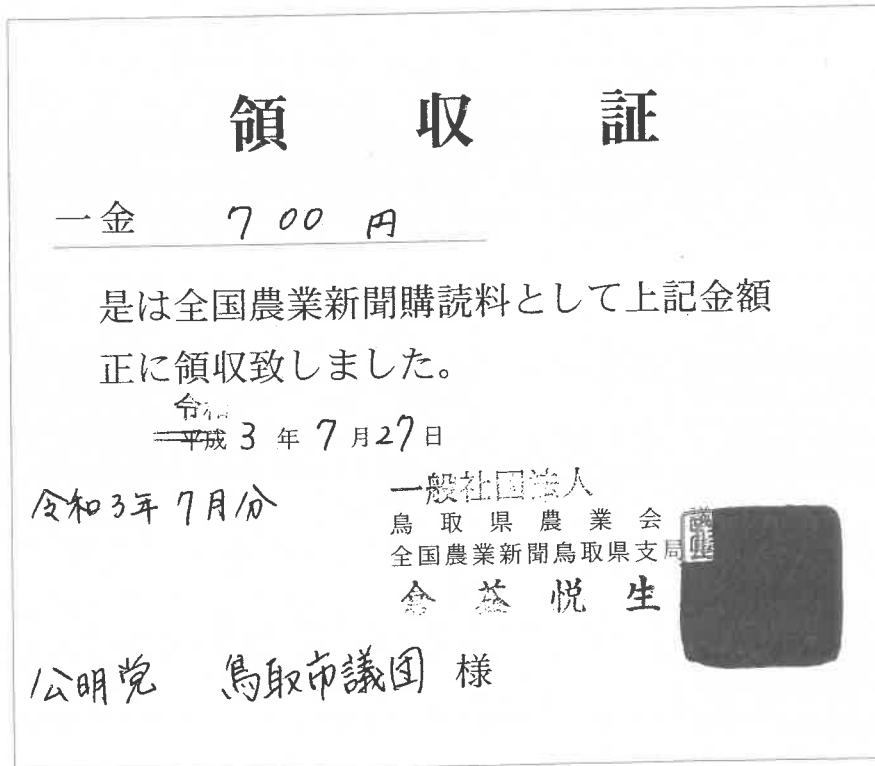 領収証
一金 700円
是は全国農業新聞購読料として上記金額
正に領収致しました。
令和
平成 3年 7月27日
令和3年7月分
一般社団法人
鳥取県農業会議
全国農業新聞鳥取県支局
悦生
公明党 鳥取市議団 様